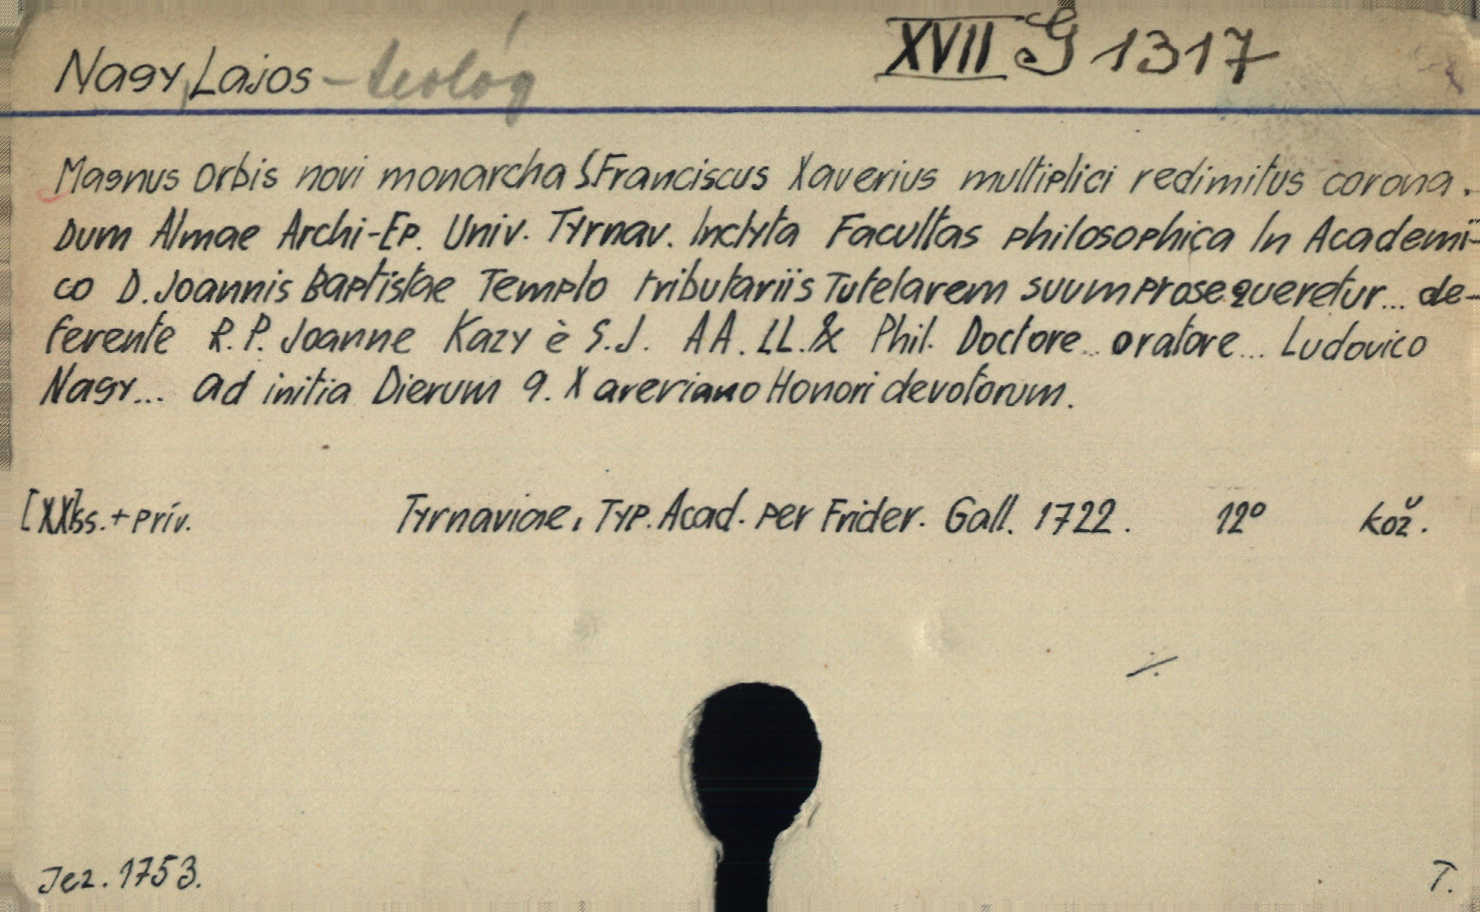 Nagy, Lajos - teológ XVII G 1317
Magnus orbis novi monarcha S. Franciscus Xaverius multiplici redimitus corona.
Dum Almae Archi-Ep. Univ. Tyrnav. Inclyta Facultas philosophica In Academi-
co D. Joannis Baptistae Templo tributariis Tutelarem suum prosequeretur... de-
ferente R. P. Joanne Kazy è S. J. AA. LL. & Phil. Doctore... oratore... Ludovico
Nagy... ad initia Dierum 9. Xaveriano Honori devotorum.
[XX]ss. + prív. Tyrnaviae, Typ. Acad. per Frider. Gall. 1722. 12° kož.
Jez. 1753. T.